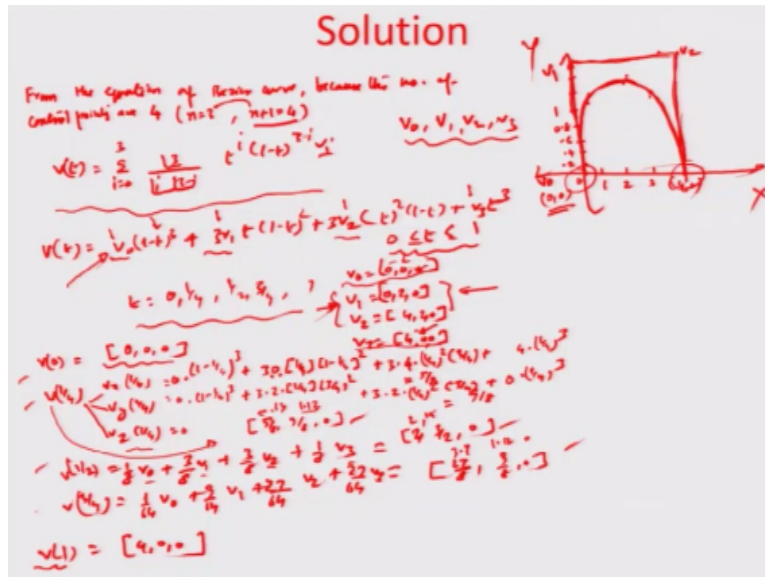 Solution
From the equation of Bezier curve, because the no. of
control points are 4 (n=3, n+1=4)
V0, V1, V2, V3
V(t) = Σ i=0 3 |3 / |i |3-i t^i (1-t)^3-i Vi
V(t) = V0(1-t)^3 + 3V1 t(1-t)^2 + 3V2 (t)^2(1-t) + V3 t^3
0 ≤ t ≤ 1
t = 0, 1/4, 1/2, 3/4, 1
V0 = [0,0,0]
V1 = [0,2,0]
V2 = [4,2,0]
V3 = [4,0,0]
V(0) = [0,0,0]
V(1/4) Vx(1/4) = 0.(1-1/4)^3 + 3.0.(1/4)(1-1/4)^2 + 3.4.(1/4)^2(3/4) + 4.(1/4)^3
Vy(1/4) = 0.(1-1/4)^3 + 3.2.(1/4)(3/4)^2 + 3.2.(1/4)^2(3/4) + 0.(1/4)^3
Vz(1/4) = 0
V(1/2) = 1/8 V0 + 3/8 V1 + 3/8 V2 + 1/8 V3 = [2, 3/2, 0]
V(3/4) = 1/64 V0 + 9/64 V1 + 27/64 V2 + 27/64 V3 = [27/8, 9/8, 0]
V(1) = [4,0,0]
Y
V1
V2
V0
(0,0)
0 1 2 3
X